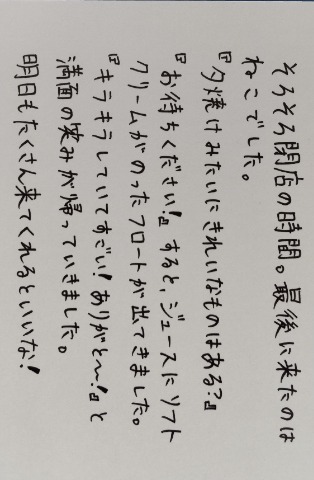 そろそろ閉店の時間。最後に来たのは
ねこでした。
『夕焼けみたいにきれいなものはある?』
『お待ちください!』すると、ジュースにソフト
クリームがのったフロートが出てきました。
『キラキラしていてすごい!ありがと〜!』と
満面の笑みが帰っていきました。
明日もたくさん来てくれるといいな!